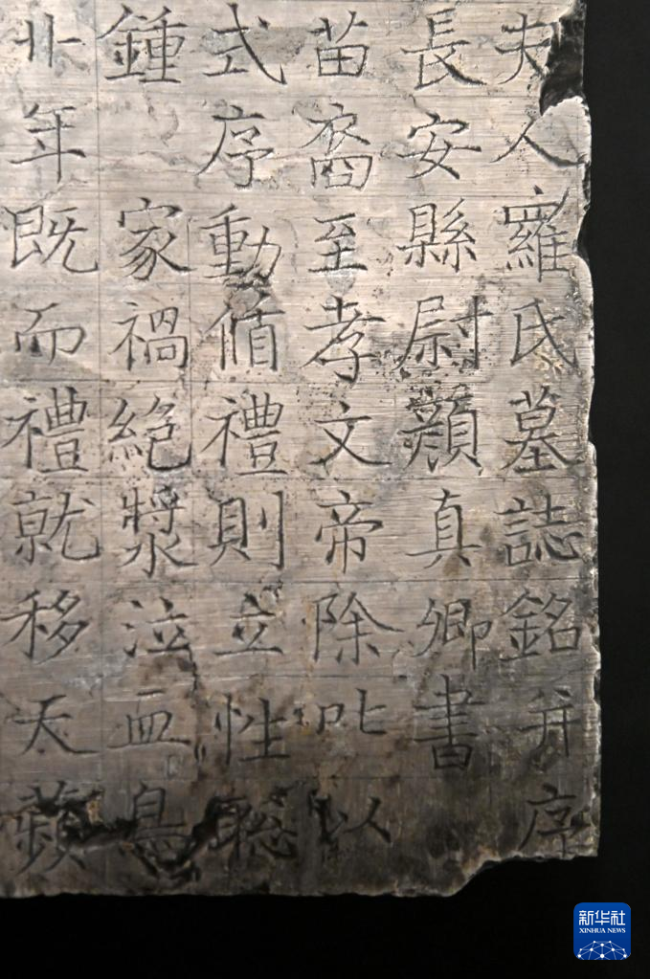 夫人羅氏墓誌銘并序
長安縣尉顏真卿書
苗裔至孝文帝除叱以
式序動循禮則立性聰
鍾 家禍絕漿泣血
丱年既而禮就移天蘋
新华社
XINHUA NEWS